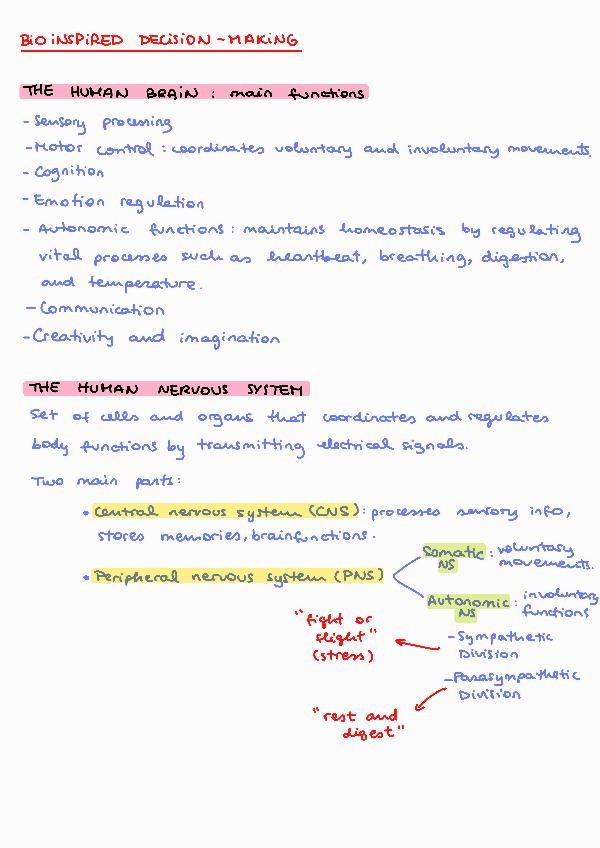 BiOiNSPiRED DECiSiON-MAKiNG
THE HUMAN BRAIN : main functions
- Sensory processing
- Motor control : coordinates voluntary and involuntary movements.
- Cognition
- Emotion regulation
- Autonomic functions : maintains homeostasis by regulating
vital processes such as heartbeat, breathing, digestion,
and temperature.
- Communication
- Creativity and imagination
THE HUMAN NERVOUS SYSTEM
Set of cells and organs that coordinates and regulates
body functions by transmitting electrical signals.
Two main parts:
• Central nervous system (CNS): processes sensory info,
stores memories, brainfunctions.
• Peripheral nervous system (PNS)
Somatic NS : voluntary
movements.
Autonomic NS : involuntary
functions
- Sympathetic
Division
"fight or
flight"
(stress)
- Parasympathetic
Division
"rest and
digest"